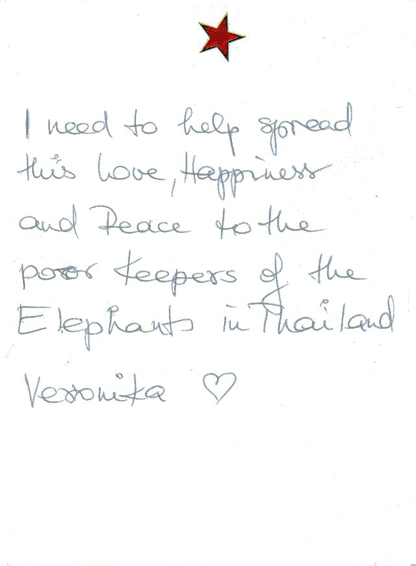 I need to help spread
this Love, Happiness
and Peace to the
poor Keepers of the
Elephants in Thailand
Veronika ♡